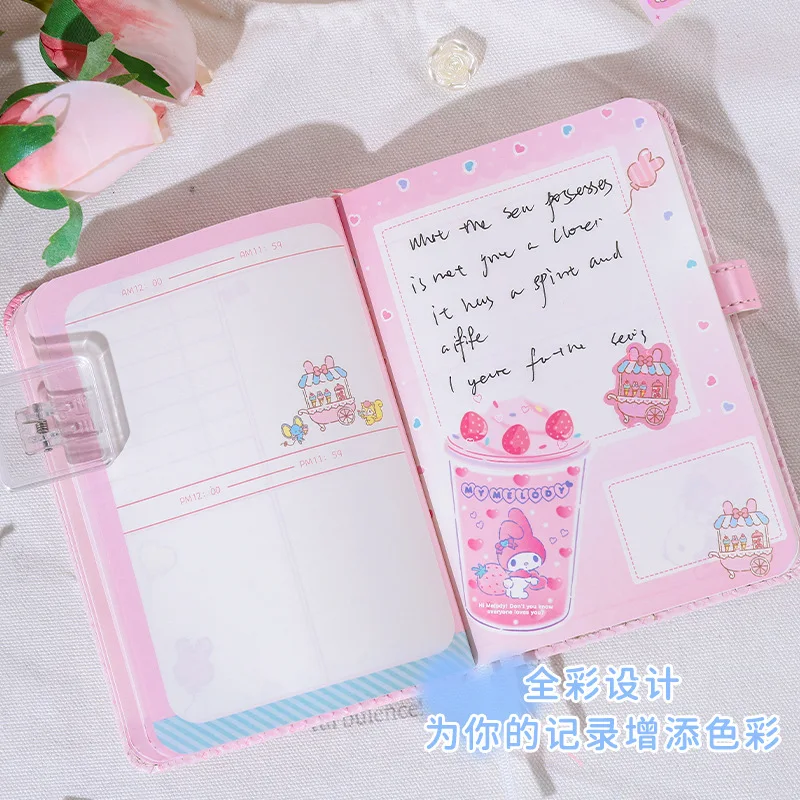 AM12：00 AM11：59
PM12：00 PM11：59
what the sea possesses
is not your a
it has a spirit and
life
I for the
MY MELODY
Hi Melody! Don't you know
everyone loves you?
全彩设计
为你的记录增添色彩